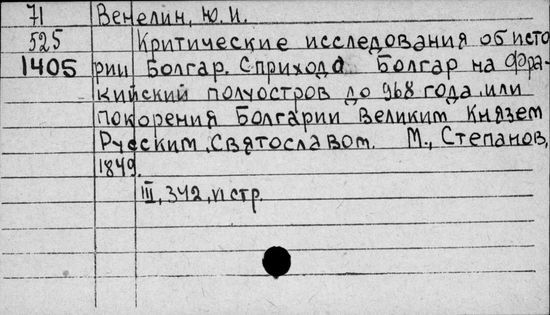 71 Венелин, Ю. И.
525 Критические исследования об исто
1405 рии Болгар. С прихода Болгар на Фра-
кийский полуостров до 968 года, или
покорения Болгарии Великим Князем
Русским, Святославом. М., Степанов,
1849.
III, 342, II стр.